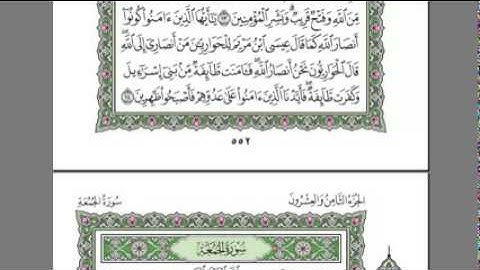 مِّنَ ٱللَّهِ وَفَتْحٌ قَرِيبٌ ۗ وَبَشِّرِ ٱلْمُؤْمِنِينَ ١٣ يَـٰٓأَيُّهَا ٱلَّذِينَ ءَامَنُوا۟ كُونُوٓا۟
أَنصَارَ ٱللَّهِ كَمَا قَالَ عِيسَى ٱبْنُ مَرْيَمَ لِلْحَوَارِيِّـۧنَ مَنْ أَنصَارِىٓ إِلَى ٱللَّهِ ۖ
قَالَ ٱلْحَوَارِيُّونَ نَحْنُ أَنصَارُ ٱللَّهِ ۖ فَـَٔامَنَت طَّآئِفَةٌ مِّنۢ بَنِىٓ إِسْرَٰٓءِيلَ
وَكَفَرَت طَّآئِفَةٌ ۖ فَأَيَّدْنَا ٱلَّذِينَ ءَامَنُوا۟ عَلَىٰ عَدُوِّهِمْ فَأَصْبَحُوا۟ ظَـٰهِرِينَ ١٤
٥٥٢
الجُزْءُ الثَّامِنُ وَالعِشْرُونَ سُورَةُ الجُمُعَةِ
سُورَةُ الجُمُعَةِ